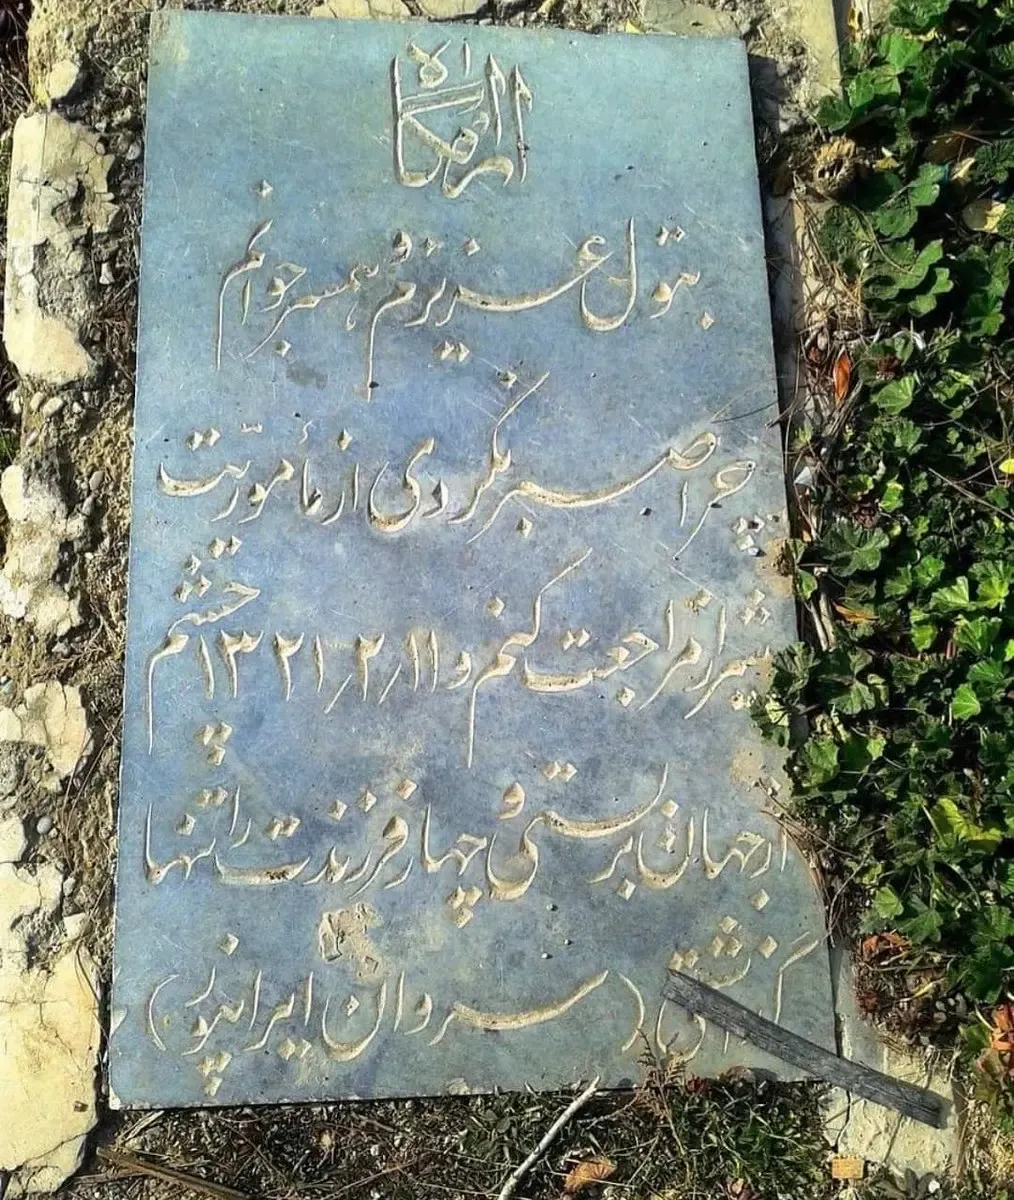 آرامگاه
بتول عزیزم و همسر جوانم
چرا صبر نکردی از مأموریّت
شیراز مراجعت کنم و ۱۳۲۱/۲/۱۱ چشم
از جهان بربستی و چهار فرزندت را تنها
گذاشتی (سروان ایرانپور)